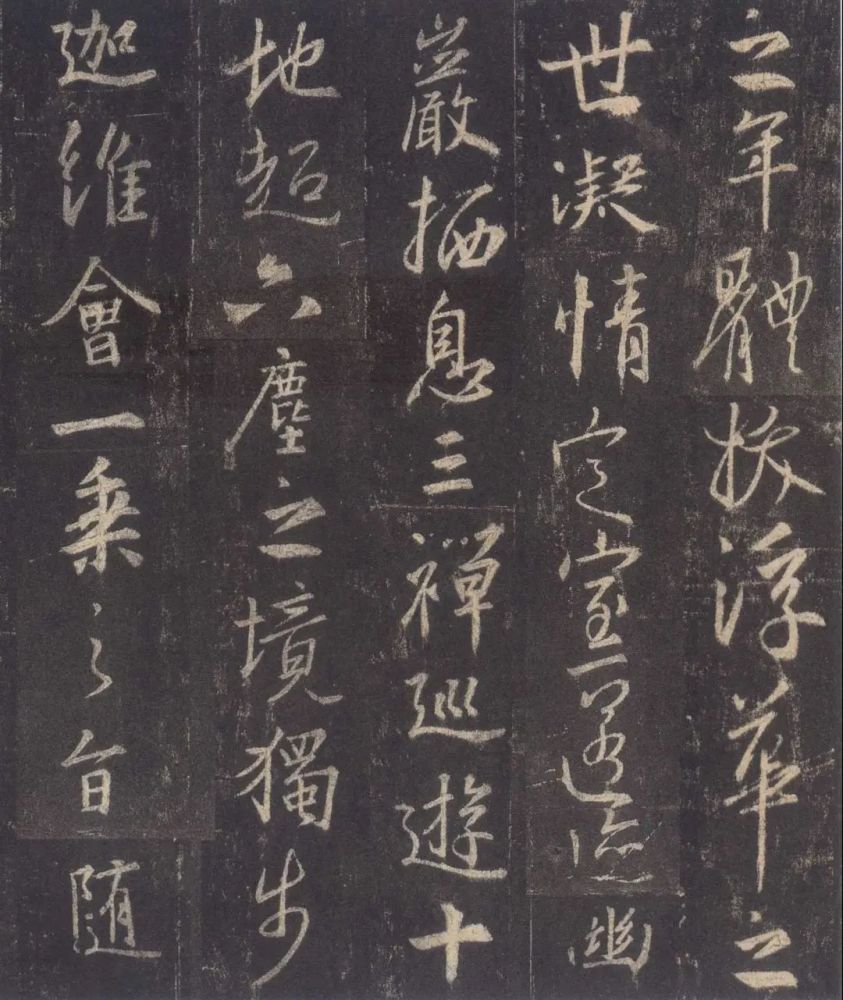 之年體拔浮華之
世凝情定室匿迹幽
巖栖息三禪巡遊十
地超六塵之境獨步
迦維會一乘之旨隨